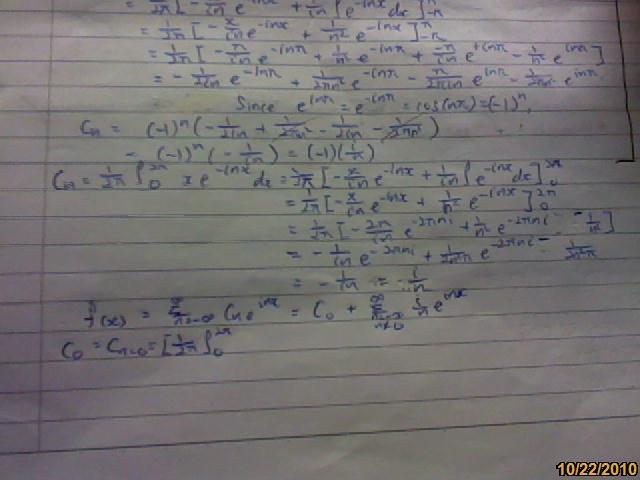 = 1/2π [ -x/in e^-inx + 1/in ∫ e^-inx dx ]_-π
= 1/2π [ -x/in e^-inx + 1/n² e^-inx ]^π_-π
= 1/2π [ -π/in e^-inπ + 1/n² e^-inπ + -π/in e^+inπ - 1/n² e^inπ ]
= - 1/2in e^-inπ + 1/2πn² e^-inπ - π/2πin e^inπ - 1/2πn² e^inπ
Since e^inπ = e^-inπ = cos(nπ) = (-1)^n,
Cn = (-1)^n (- 1/2in + 1/2πn² - 1/2in - 1/2πn²)
= (-1)^n (- 1/in) = (-1)(i/n)
Cn = 1/2π ∫_0^2π x e^-inx dx = 1/2π [ -x/in e^-inx + 1/in ∫ e^-inx dx ]^2π_0
= 1/2π [ -x/in e^-inx + 1/n² e^-inx ]^2π_0
= 1/2π [ -2π/in e^-2πni + 1/n² e^-2πni - 1/n² ]
= - 1/in e^-2πni + 1/2n²π e^-2πni - 1/2n²π
= - 1/in = i/n
f(x) = Σ^∞_n=-∞ Cn e^inx = C0 + Σ^∞_n=-∞ n≠0 i/n e^inx
C0 = Cn=0 = [ 1/2π ∫_0^2π
10/22/2010